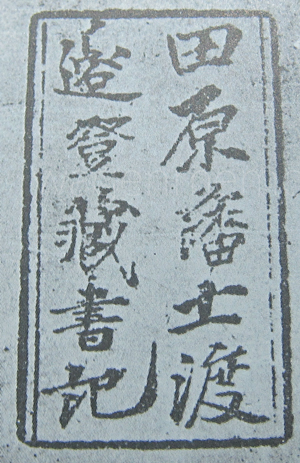 田原藩士渡
邉登藏書記